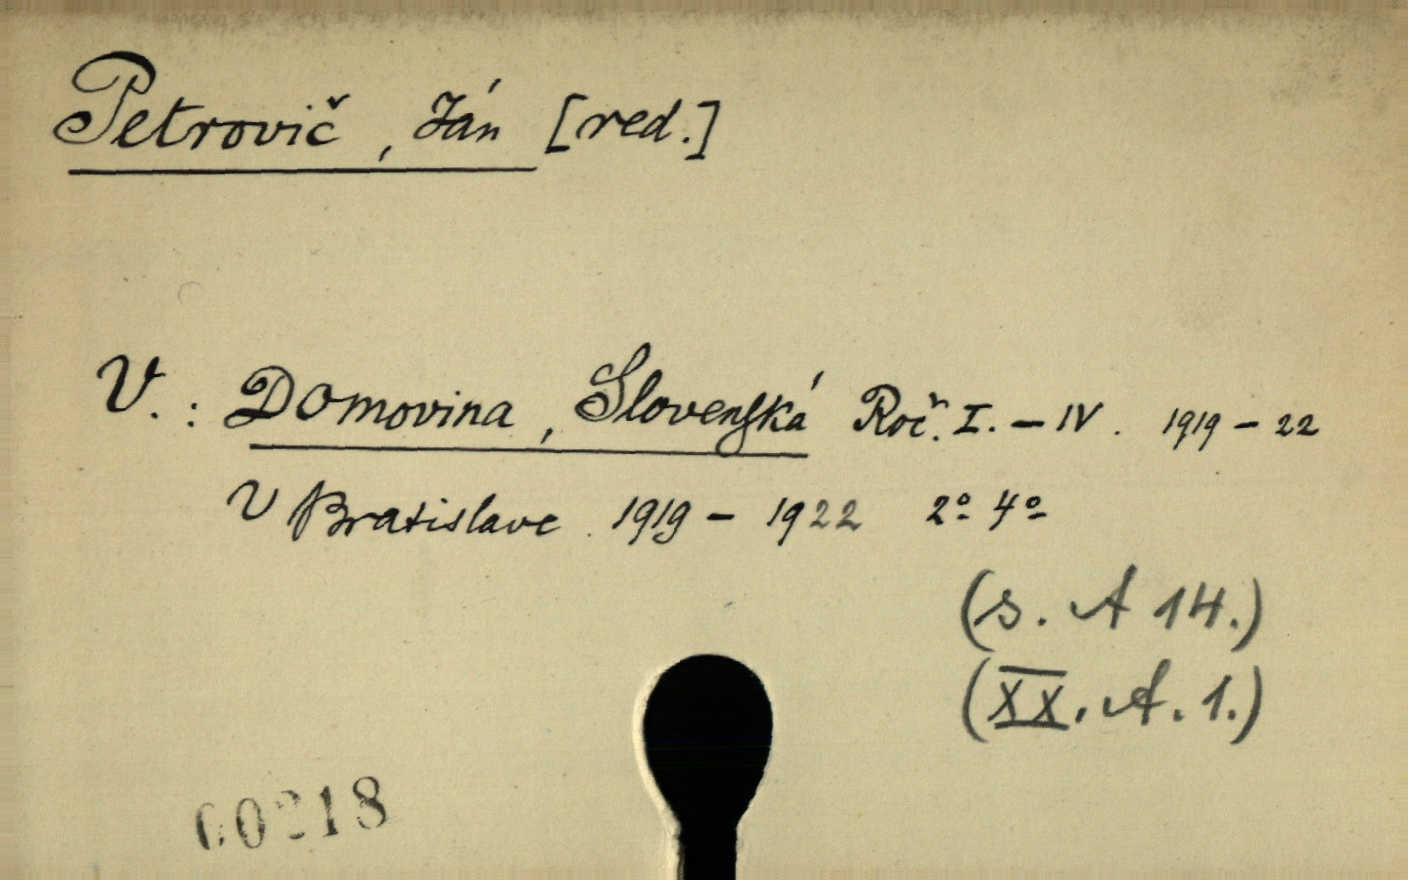 Petrovič, Ján [red.]
V.: Domovina, Slovenská Roč. I. – IV. 1919 – 22
V Bratislave. 1919 – 1922 2º 4º
(s. A 14.)
(XX. A. 1.)
00218